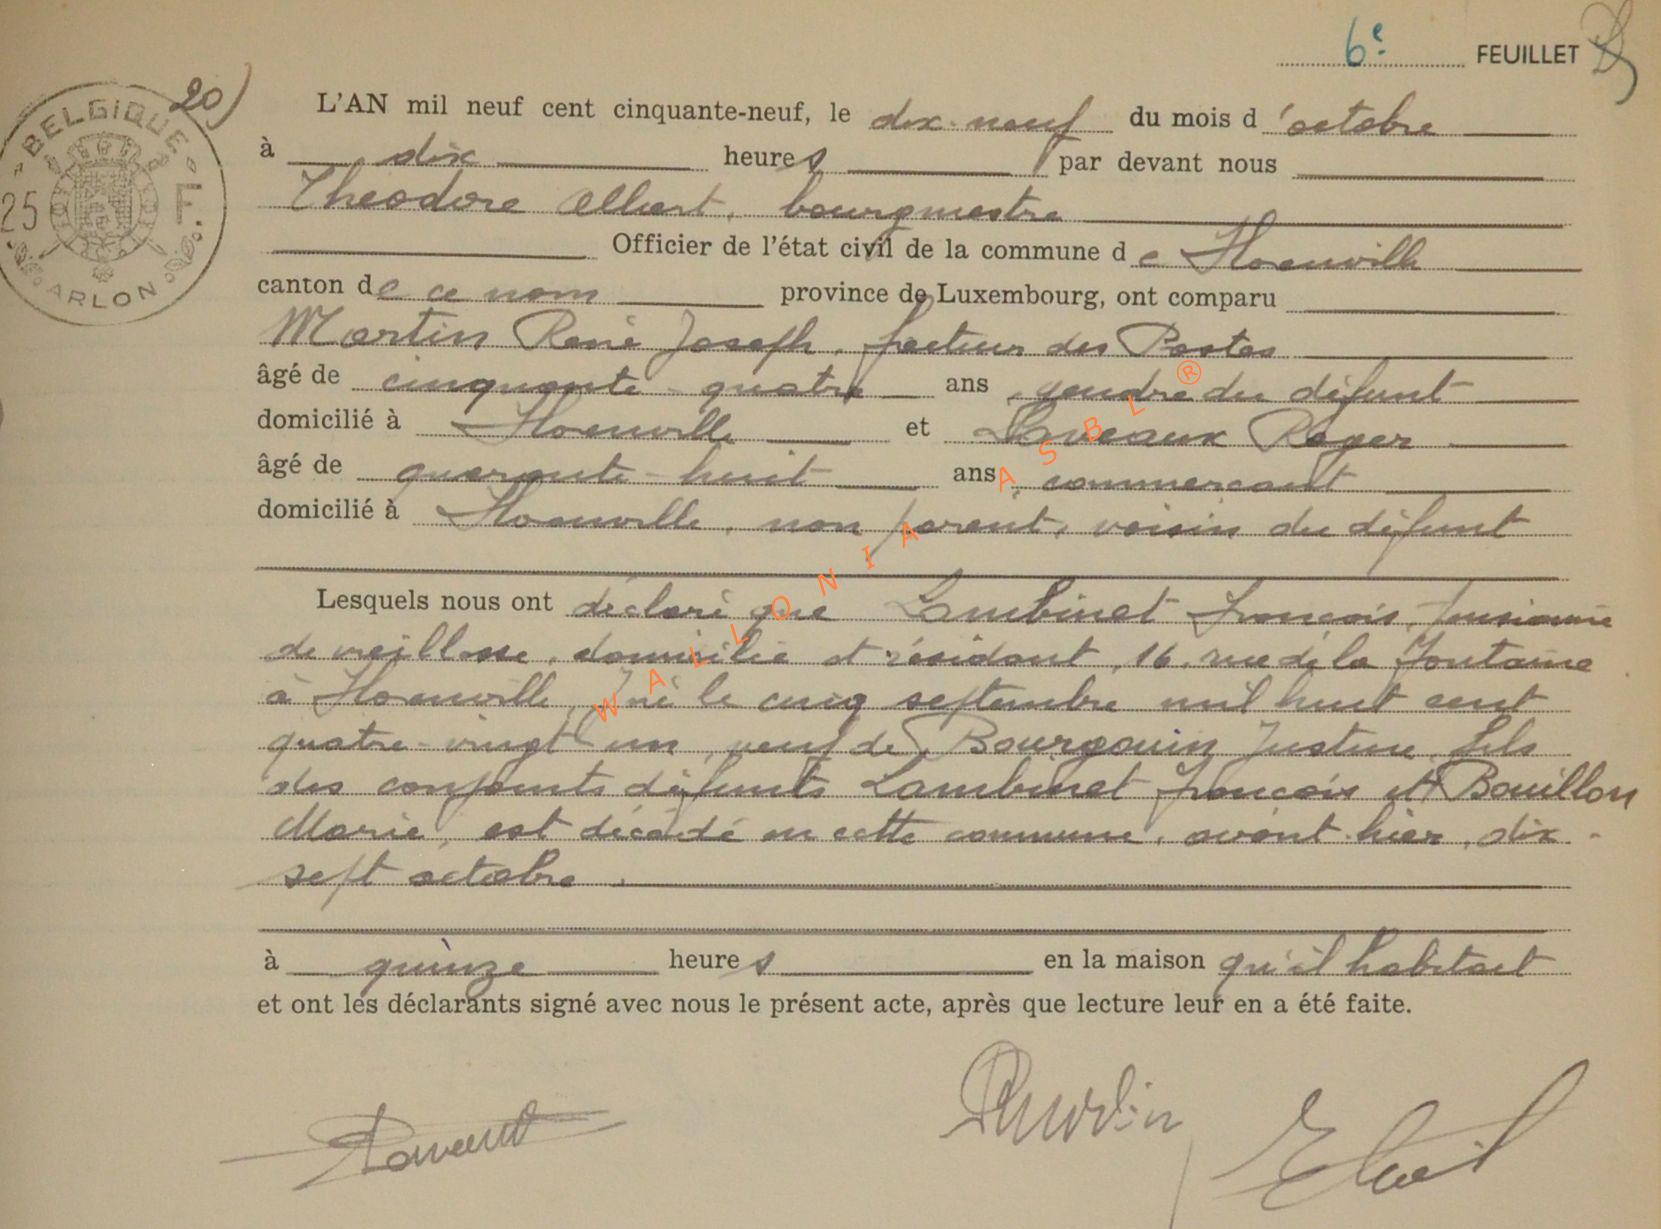 6e FEUILLET
20)
BELGIQUE
25 F.
ARLON
L'AN mil neuf cent cinquante-neuf, le dix-neuf du mois d'octobre
à dix heures par devant nous
Théodore Albert, bourgmestre
Officier de l'état civil de la commune de
canton de ce nom province de Luxembourg, ont comparu
Martin René Joseph, facteur des Postes
âgé de cinquante-quatre ans, gendre du défunt
domicilié à et Laveaux Roger
âgé de quarante-huit ans, commerçant
domicilié à , non parent, voisin du défunt
Lesquels nous ont déclaré que Lambinet François, pensionné
de vieillesse, domicilié et résidant, 16, rue de la Fontaine
à , né le cinq septembre mil huit cent
quatre-vingt un, veuf de Bourgouin Justine, fils
des conjoints défunts Lambinet François et Bouillon
Marie, est décédé en cette commune, avant-hier, dix-
sept octobre.
à quinze heures en la maison qu'il habitait
et ont les déclarants signé avec nous le présent acte, après que lecture leur en a été faite.
WALLONIA ASBL ®